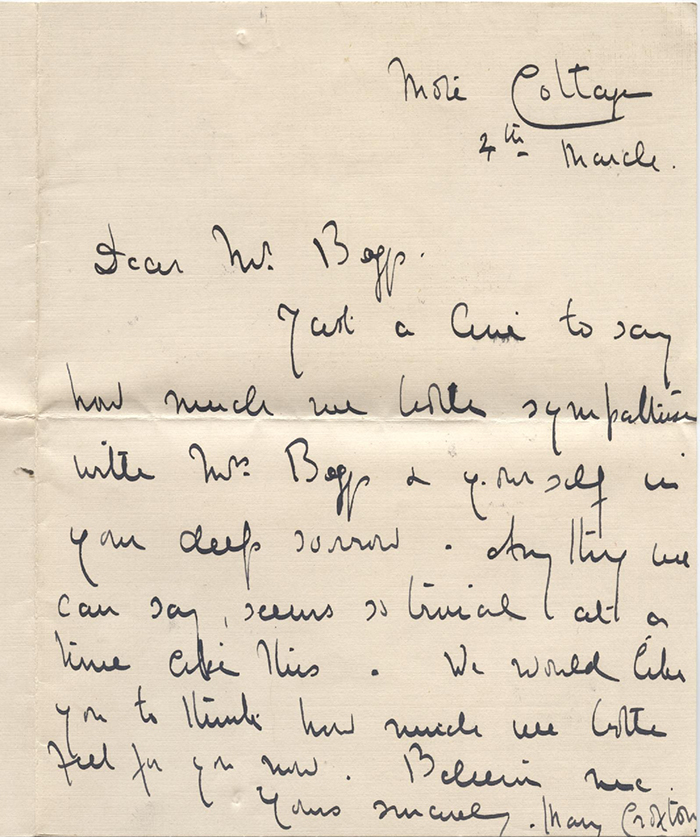 More Cottage
4th March.
Dear Mr. Begg.
Just a line to say
how much we both sympathise
with Mrs Begg & yourself in
your deep sorrow. Anything we
can say, seems so trivial at a
time like this. We would like
you to think how much we both
feel for you now. Believe me
Yours sincerely. Mary Croxton